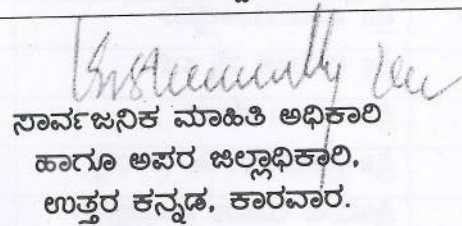 ಸಾರ್ವಜನಿಕ ಮಾಹಿತಿ ಅಧಿಕಾರಿ
ಹಾಗೂ ಅಪರ ಜಿಲ್ಲಾಧಿಕಾರಿ,
ಉತ್ತರ ಕನ್ನಡ, ಕಾರವಾರ.